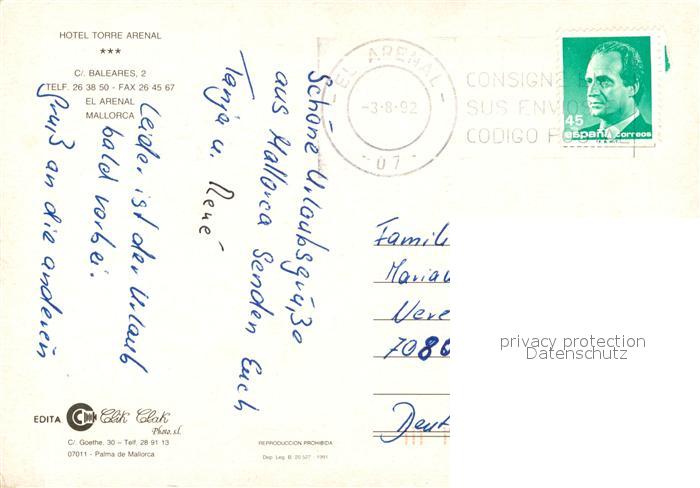 HOTEL TORRE ARENAL
***
C/. BALEARES, 2
TELF. 26 38 50 - FAX 26 45 67
EL ARENAL
MALLORCA
Schöne Urlaubsgrüße
aus Mallorca senden Euch
Tanja u. René
Leider ist der Urlaub
bald vorbei.
Gruß an die anderen
EL ARENAL
-3-8-92
-07-
CONSIGNE E
SUS ENVIOS
CODIGO POSTAL
45
españa correos
Famili
Maria
Were
7086
Deut
privacy protection
Datenschutz
EDITA
Clik Clak
Photo, s.l.
C/. Goethe, 30 – Telf. 28 91 13
07011 - Palma de Mallorca
REPRODUCCION PROHIBIDA
Dep. Leg. B. 20.527 - 1991